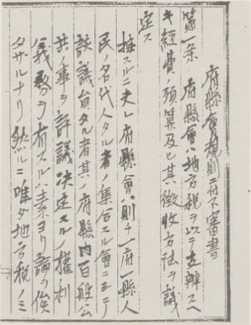 府縣會規則不審書
第一条 府縣會ハ地方税ヲ以テ支辨スヘ
キ経費ノ豫算及ヒ其徴收方法ヲ議
定ス
推スルニ夫レ府縣會ハ則チ一府一縣人
民ノ名代人タル者ノ集合スル會ニシテ
談議員タル者其府縣内百般公
共ノ事ヲ討議决定スルノ權利
義務ヲ有スルハ素ヨリ論ヲ俟
タサルナリ然ルニ唯タ地方税ヲ